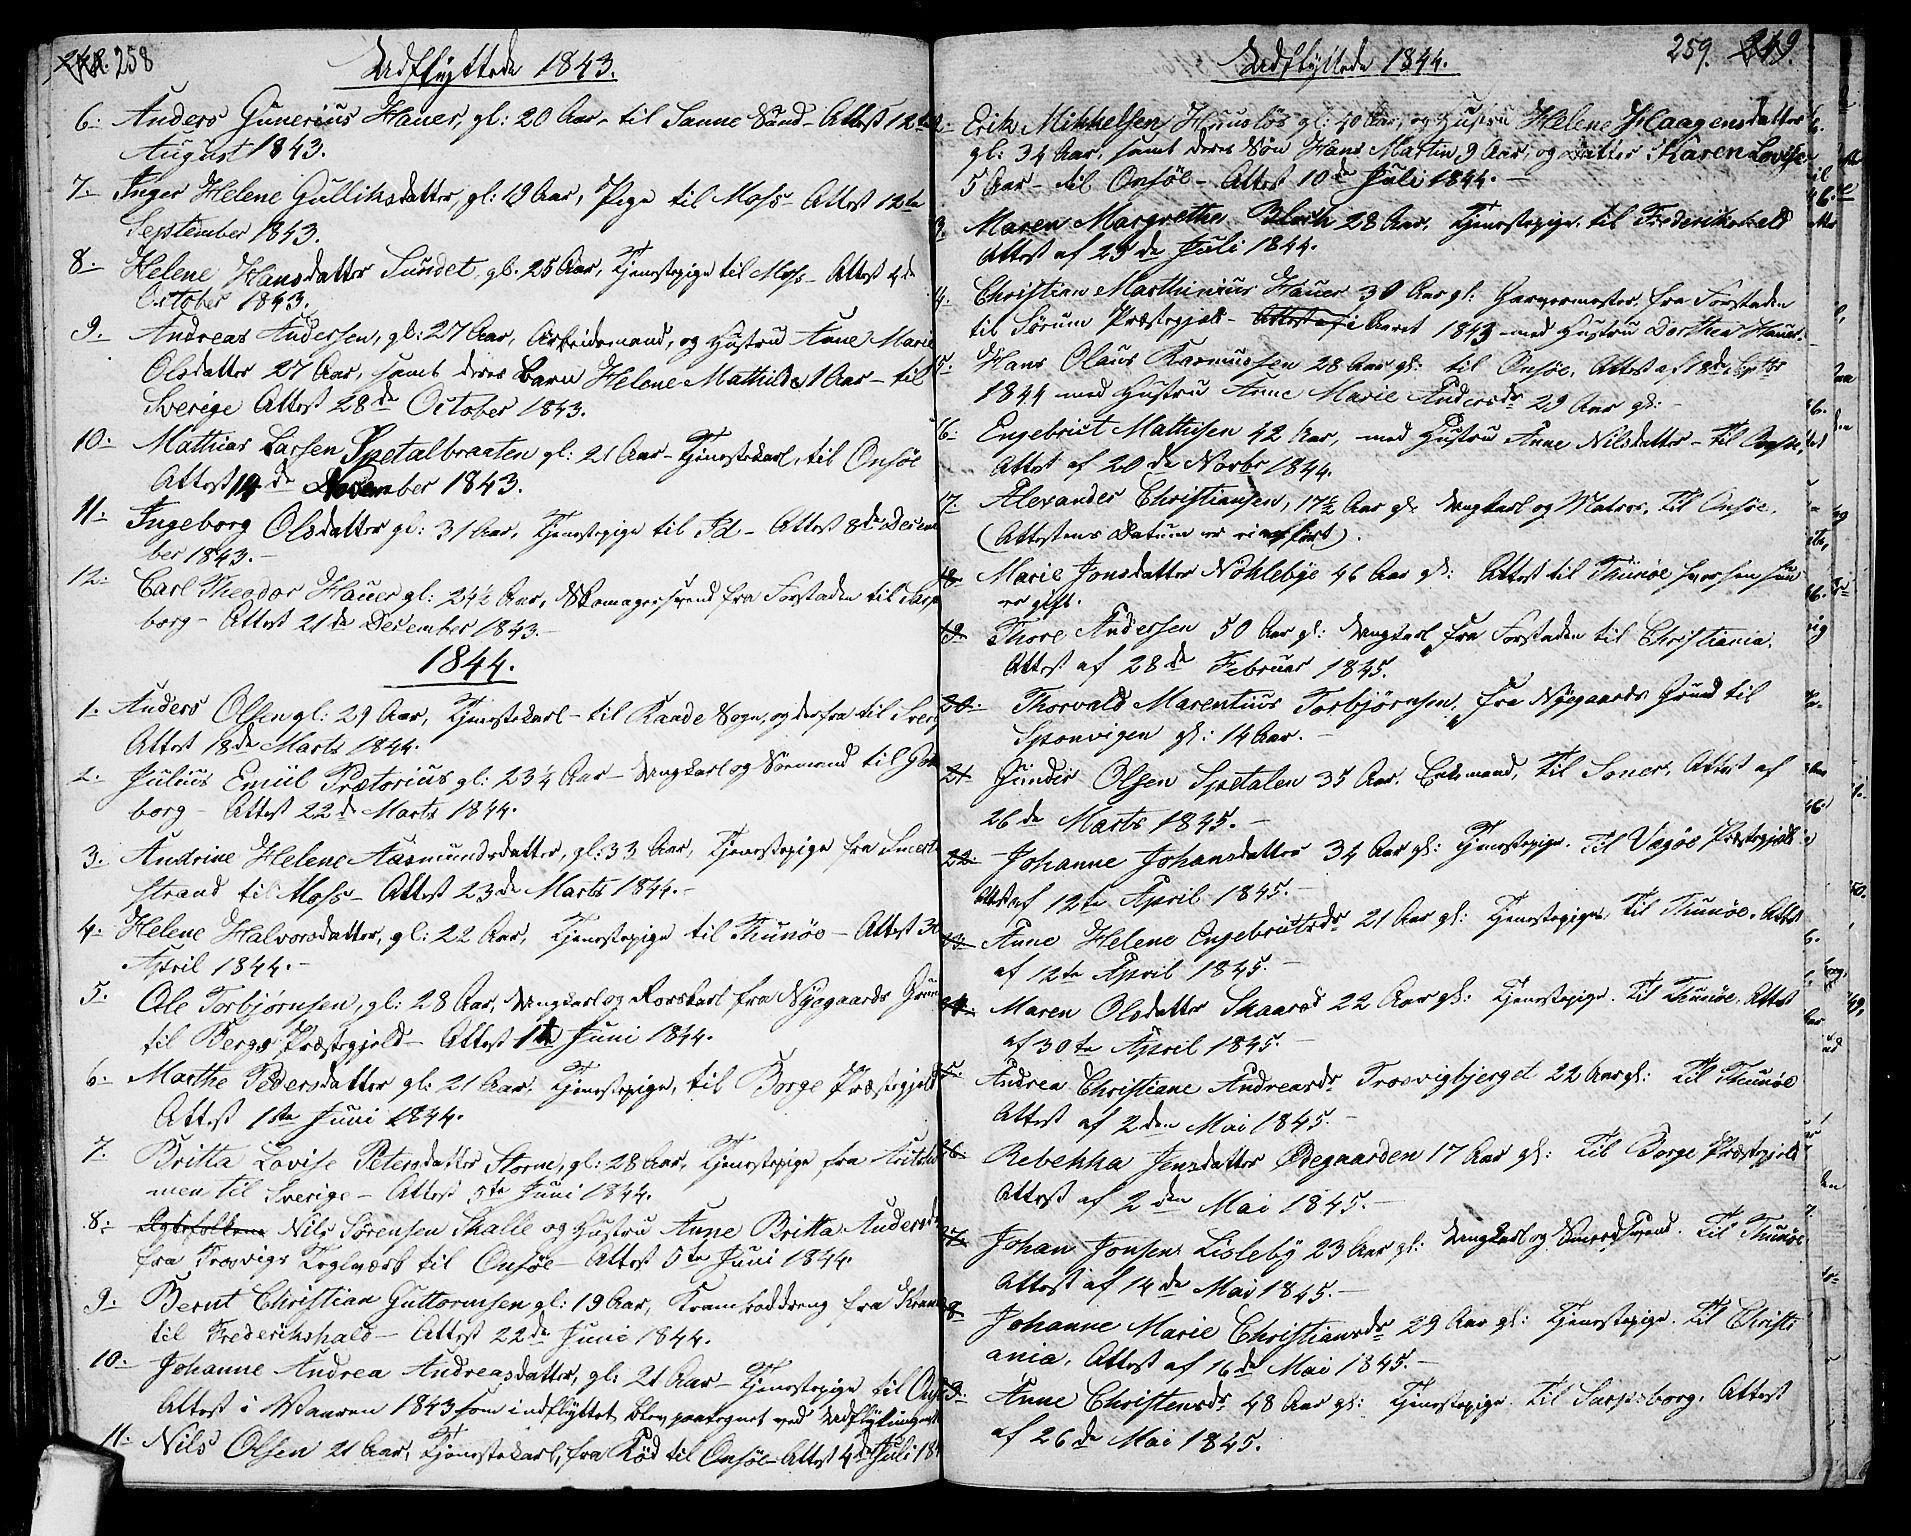 258
Udflyttede 1843.
6. Anders Gunerius Hauer, gl: 20 Aar, til Sanne Sund - Attest 12te
August 1843.
7. Inger Helene Gulliksdatter, gl: 19 Aar, Pige til Moss - Attest 12te
September 1843.
8. Helene Hansdatter Sundet, gl. 25 Aar, Tjenestepige til Moss - Attest 4de
October 1843.
9. Andreas Andersen, gl: 27 Aar, Arbeidsmand, og Hustru Anne Marie
Olsdatter 27 Aar, samt deres Barn Helene Mathilde 1 Aar - til
Sverige Attest 28de October 1843.
10. Mathias Larsen Spetalbraaten gl: 21 Aar - Tjenestekarl, til Onsöe
Attest 14de November 1843.
11. Ingeborg Olsdatter gl: 31 Aar, Tjenestepige til Id - Attest 8de Decem
ber 1843.-
12. Carl Theodor Hauer gl: 24½ Aar, Skomagersvend fra Forstaden til Sarps
borg - Attest 21de December 1843.-
1844.
1. Anders Olsen gl: 29 Aar, Tjenestekarl - til Raade Sogn, og derfra til Sverig
Attest 18de Marts 1844.
2. Julius Emil Prætorius gl: 23¼ Aar - Ungkarl og Sömand til
borg - Attest 22de Marts 1844.
3. Andrine Helene Aasmundsdatter, gl: 33 Aar, Tjenestepige fra
strand til Moss - Attest 23de Marts 1844.-
4. Helene Halvorsdatter, gl: 22 Aar, Tjenestepige til Thunöe - Attest 30
April 1844.-
5. Ole Torbjørnsen, gl: 28 Aar, Ungkarl og Rorskarl fra Nygaards Grun
til Bergs Præstegjeld - Attest 1te Juni 1844.
6. Marthe Pedersdatter gl: 21 Aar, Tjenestepige, til Borge Præstegjeld
Attest 1ste Juni 1844.
7. Britta Lovise Petersdatter Storm, gl: 28 Aar, Tjenestepige fra
men til Sverige - Attest 5te Juni 1844.
8. Ægtefolkene Nils Sørensen Skalle og Hustru Anne Britta Andersd
fra Trosvigs Teglværk til Onsöe - Attest 5te Juni 1844.
9. Bernt Christian Guttormsen gl: 19 Aar, Kramboddreng fra
til Frederikshald - Attest 22de Juni 1844.
10. Johanne Andrea Andreasdatter, gl: 21 Aar - Tjenestepige til Ons
Attest i Vaaren 1843 som indflyttet blev paategnet ved Udflytningen
11. Nils Olsen 21 Aar, Tjenestekarl, fra Röd til Onsöe - Attest 4de Juli 18
259. 249.
Udflyttede 1844.
Erik Mikkelsen Huuslös gl: 40 Aar, og Hustru Helene Haagensdatter
gl: 34 Aar, samt deres Søn Hans Martin 9 Aar, og Datter Karen Lovise
5 Aar - til Onsöe - Attest 10de Juli 1844.-
3. Maren Margrethe Bloch 28 Aar, Tjenestepige, til Frederikshald
Attest af 23de Juli 1844.
4. Christian Marthinius Hauer 30 Aar gl: Garvermester, fra Forstaden
til Sørum Præstegjeld - Attest af i Aaret 1843 med Hustru Dorthea Hauer.
5. Hans Olaus Rasmussen 28 Aar gl: til Onsöe, Attest af 18de Septbr
1844 med Hustru Anne Marie Andersdr 29 Aar gl: -
6. Engebret Mathisen 42 Aar, med Hustru Anne Nilsdatter - til Onsöe,
Attest af 20de Novbr 1844.
7. Alexander Christiansen, 17½ Aar gl. Ungkarl og Matros, til Onsöe,
(Attestens Datum er ei anført).
18. Marie Jonsdatter Nöhlebye 46 Aar gl: Attest til Thunöe hvorhen hun
er gift.
19. Thore Andersen 50 Aar gl: Ungkarl, fra Forstaden til Christiania.
Attest af 28de Februar 1845.
20. Thorvald Marentius Torbjørnsen, fra Nygaards Grund til
Sponvigen gl: 14 Aar. -
21. Gunder Olsen Spetalen 35 Aar. Enkemand, til Soner, Attest af
26de Marts 1845.-
22. Johanne Johansdatter 34 Aar gl: Tjenestepige. Til Vagöe Præstegjeld
Attest af 12te April 1845.-
23. Anne Helene Engebretsdr 21 Aar gl: Tjenestepige, til Thunöe, Attest
af 12te April 1845.-
24. Maren Olsdatter Skaarud 22 Aar gl: Tjenestepige. Til Thunöe, Attest
af 30te April 1845.-
25. Andrea Christiane Andreasdr Trosvigbjerget 22 Aar gl: Til Thunöe
Attest af 2den Mai 1845.-
26. Rebekka Jensdatter Ødegaarden 17 Aar gl: Til Borge Præstegjeld
Attest af 2den Mai 1845.-
27. Johan Jonsen Lisleby 23 Aar gl: Ungkarl og Smedsvend. Til Thunöe
Attest af 14de Mai 1845.-
28. Johanne Marie Christiansdr 29 Aar gl: Tjenestepige. Til Christi
ania, Attest af 16de Mai 1845.-
9. Anne Christensdr 48 Aar gl: Tjenestepige til Sarpsborg, Attest
af 26de Mai 1845.